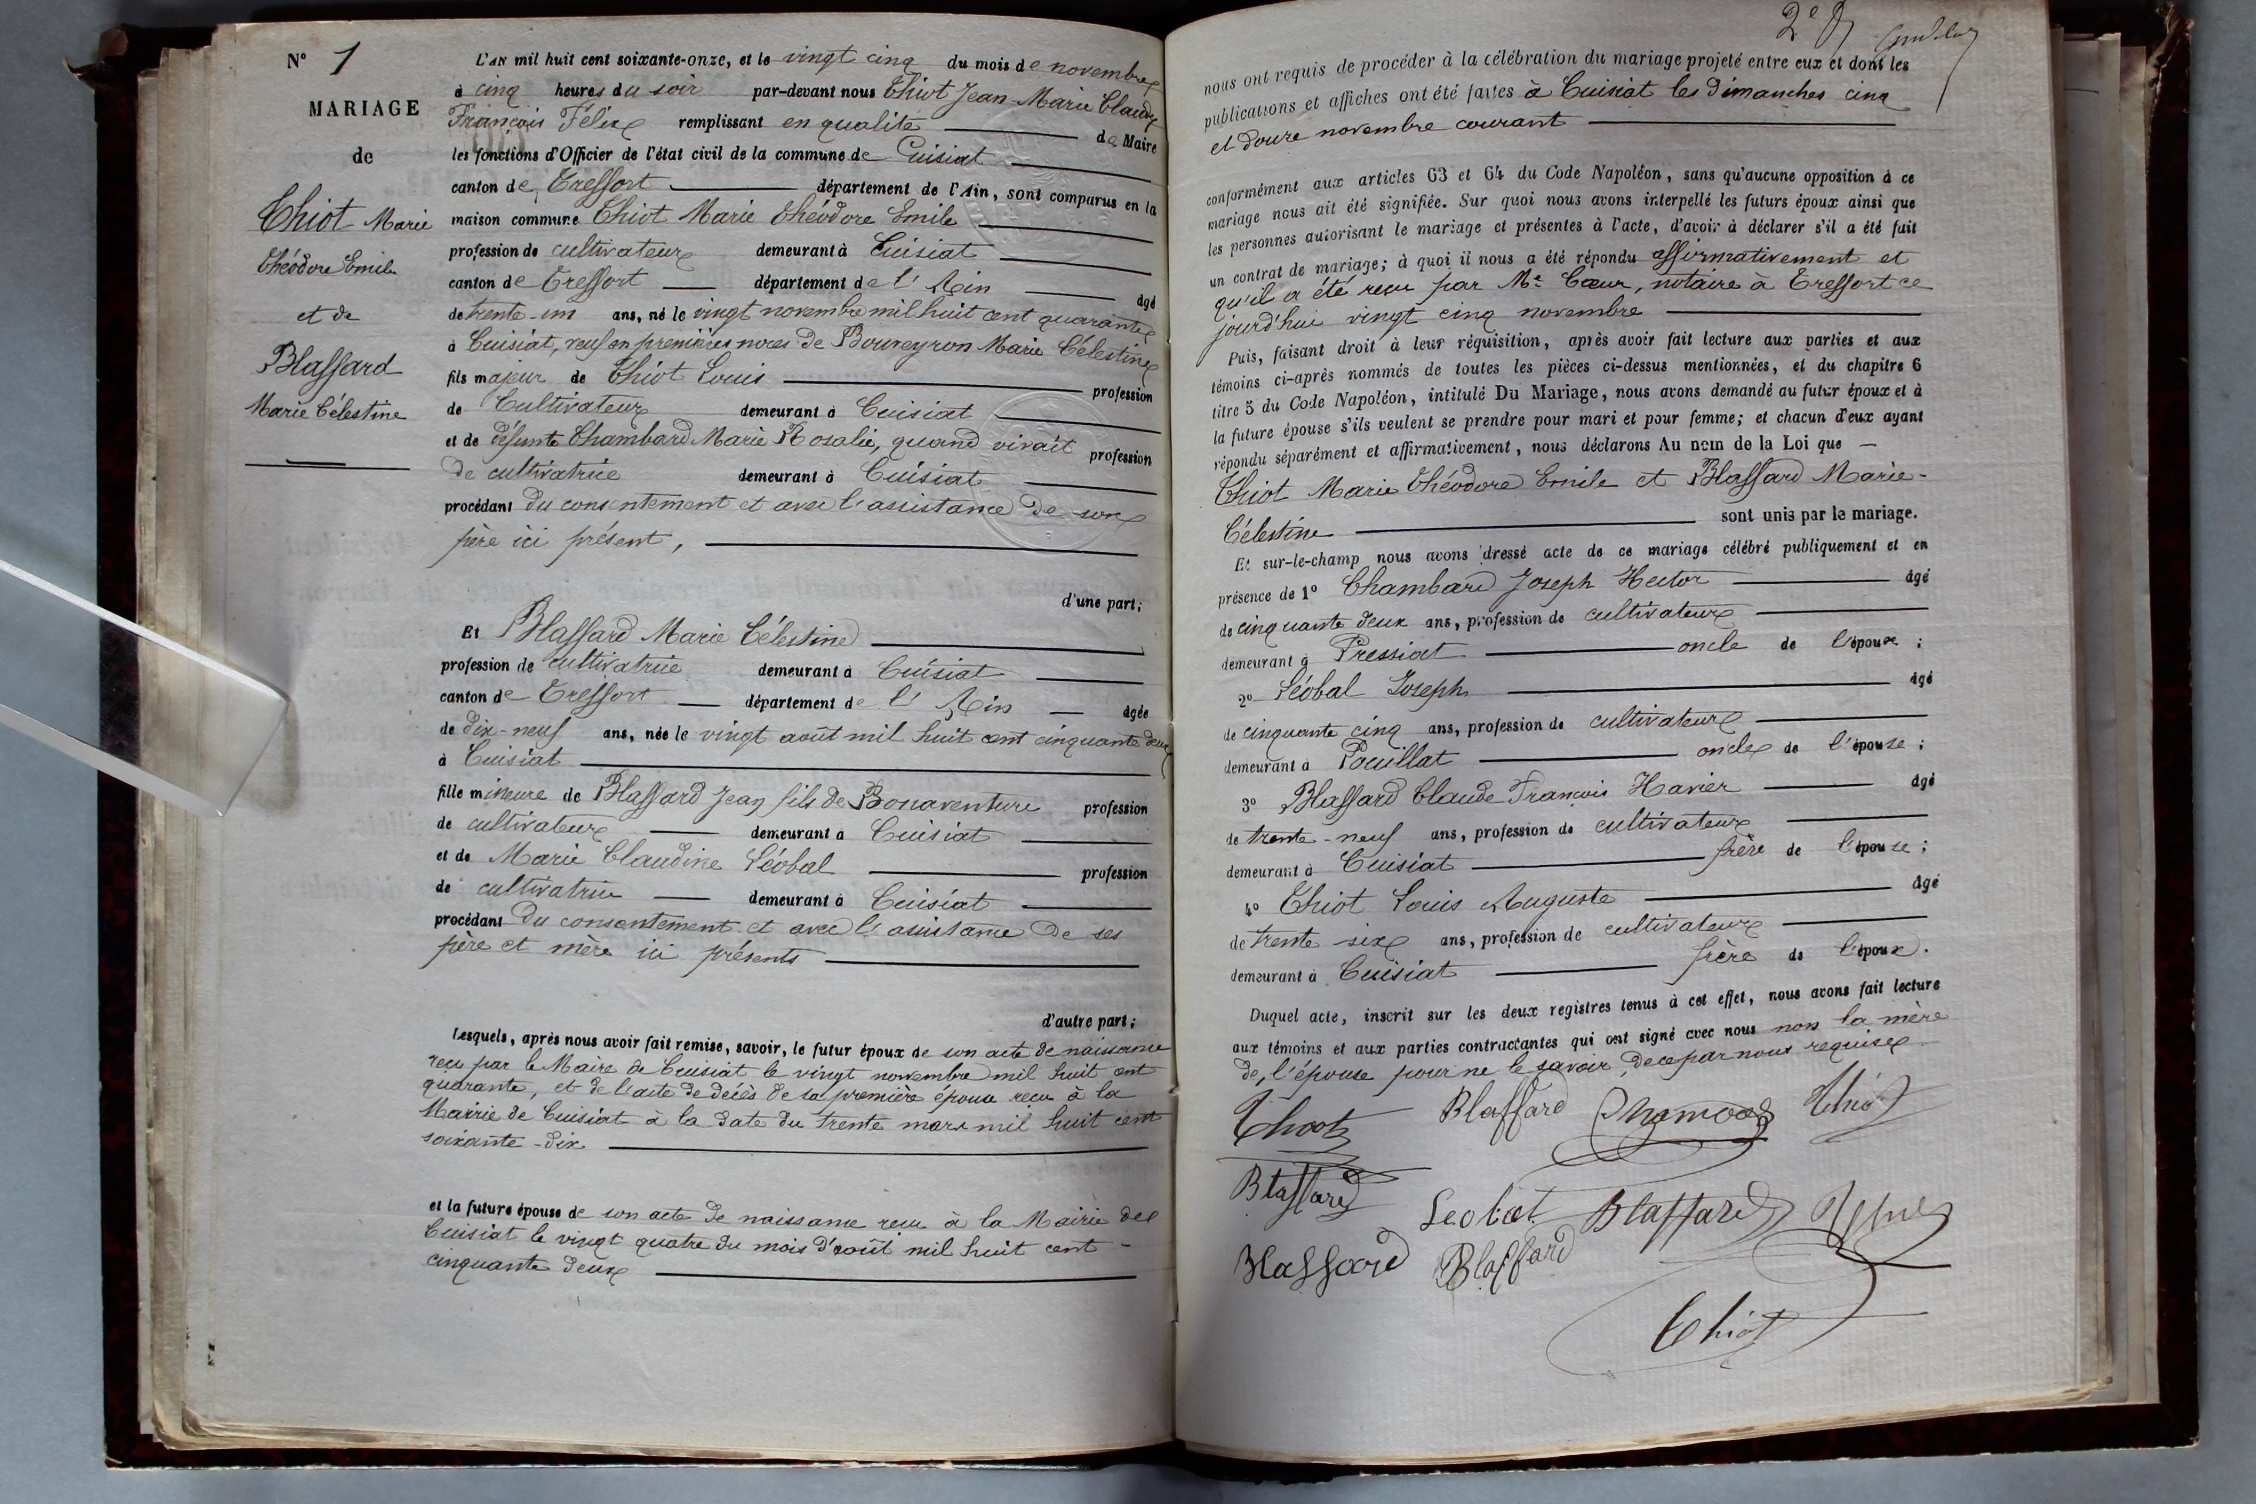 N° 1
MARIAGE
de
Thiot Marie
Théodore Emile
et de
Blaffard
Marie Célestine
L'AN mil huit cent soixante-onze, et le vingt cinq du mois de novembre
à cinq heures du soir par-devant nous Thiot Jean-Marie Claude
François Félix remplissant en qualité de Maire
les fonctions d'Officier de l'état civil de la commune de Cuisiat
canton de Treffort département de l'Ain, sont comparus en la
maison commune Thiot Marie Théodore Emile
profession de cultivateur demeurant à Cuisiat
canton de Treffort département de l'Ain âgé
de trente-un ans, né le vingt novembre mil huit cent quarante
à Cuisiat, veuf en premières noces de Bouveyron Marie Célestine
fils majeur de Thiot Louis profession
de Cultivateur demeurant à Cuisiat
et de défunte Chambard Marie Rosalie, quand vivait profession
de cultivatrice demeurant à Cuisiat
procédant du consentement et avec l'assistance de son
père ici présent,
d'une part;
Et Blaffard Marie Célestine
profession de cultivatrice demeurant à Cuisiat
canton de Treffort département de l'Ain âgée
de dix-neuf ans, née le vingt août mil huit cent cinquante deux
à Cuisiat
fille mineure de Blaffard Jean fils de Bonaventure profession
de cultivateur demeurant à Cuisiat
et de Marie Claudine Léobal profession
de cultivatrice demeurant à Cuisiat
procédant du consentement et avec l'assistance de ses
père et mère ici présents
d'autre part;
Lesquels, après nous avoir fait remise, savoir, le futur époux de son acte de naissance
reçu par le Maire de Cuisiat le vingt novembre mil huit cent
quarante, et de l'acte de décès de sa première épouse reçu à la
Mairie de Cuisiat à la date du trente mars mil huit cent
soixante-dix
et la future épouse de son acte de naissance reçu à la Mairie de
Cuisiat le vingt quatre du mois d'août mil huit cent
cinquante deux
nous ont requis de procéder à la célébration du mariage projeté entre eux et dont les
publications et affiches ont été faites à Cuisiat les dimanches cinq
et douze novembre courant
conformément aux articles 63 et 64 du Code Napoléon, sans qu'aucune opposition à ce
mariage nous ait été signifiée. Sur quoi nous avons interpellé les futurs époux ainsi que
les personnes autorisant le mariage et présentes à l'acte, d'avoir à déclarer s'il a été fait
un contrat de mariage; à quoi il nous a été répondu affirmativement et
qu'il a été reçu par Me Cœur, notaire à Treffort ce
jourd'hui vingt cinq novembre
Puis, faisant droit à leur réquisition, après avoir fait lecture aux parties et aux
témoins ci-après nommés de toutes les pièces ci-dessus mentionnées, et du chapitre 6
titre 5 du Code Napoléon, intitulé Du Mariage, nous avons demandé au futur époux et à
la future épouse s'ils veulent se prendre pour mari et pour femme; et chacun d'eux ayant
répondu séparément et affirmativement, nous déclarons Au nom de la Loi que
Thiot Marie Théodore Emile et Blaffard Marie-
Célestine sont unis par le mariage.
Et sur-le-champ nous avons dressé acte de ce mariage célébré publiquement et en
présence de 1° Chambard Joseph Hector âgé
de cinquante deux ans, profession de cultivateur
demeurant à Pressiat oncle de l'époux;
2° Léobal Joseph âgé
de cinquante cinq ans, profession de cultivateur
demeurant à Pouillat oncle de l'épouse;
3° Blaffard Claude François Xavier âgé
de trente-neuf ans, profession de cultivateur
demeurant à Cuisiat frère de l'épouse;
4° Thiot Louis Auguste âgé
de trente six ans, profession de cultivateur
demeurant à Cuisiat frère de l'époux.
Duquel acte, inscrit sur les deux registres tenus à cet effet, nous avons fait lecture
aux témoins et aux parties contractantes qui ont signé avec nous non la mère
de l'épouse pour ne le savoir, de ce par nous requise
Thiot Blaffard Thiot
Blaffard Leobal Blaffard
Blaffard Blaffard
Thiot